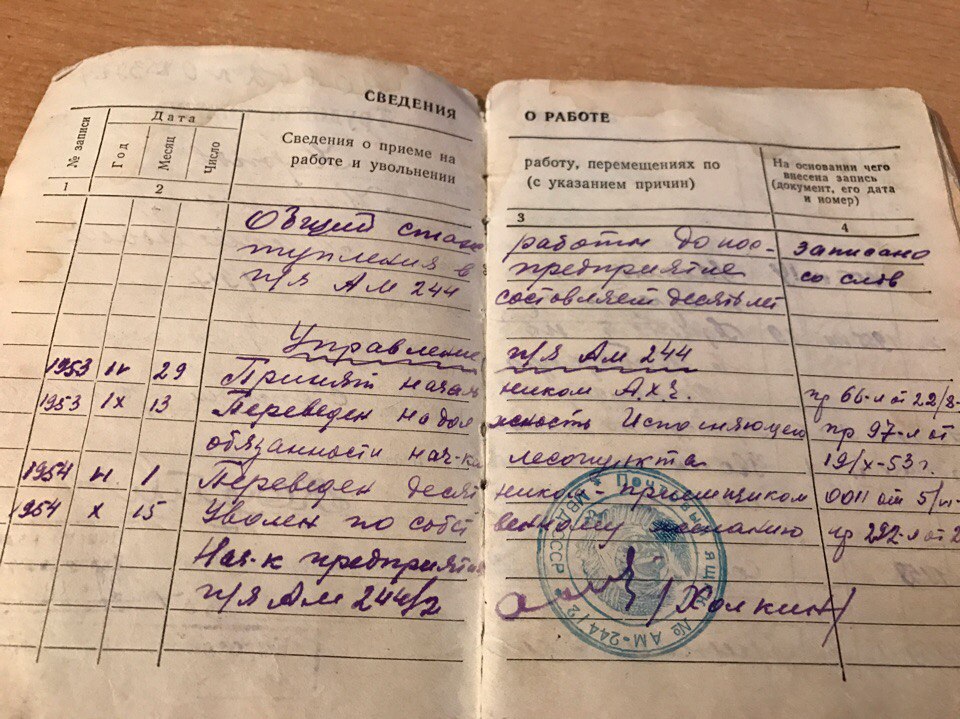 СВЕДЕНИЯ О РАБОТЕ
№ записи
Дата
Год
Месяц
Число
Сведения о приеме на работу, перемещениях по
работе и увольнении (с указанием причин)
На основании чего
внесена запись
(документ, его дата
и номер)
1 2 3 4
Общий стаж работы до пос- записано
тупления в предприятие со слов
п/я АМ 244 составляет десять лет
Управление п/я АМ 244
1953 29 Принят начальником А.Х.Ч. пр 66-л от 22/8-
1953 IX 13 Переведен на должность Исполняющего пр 97-л от
обязанности нач-ка лесопункта 19/X-53 г.
1954 1 Переведен десятником-приемщиком 0011 от 5/
1954 X 15 Уволен по собственному желанию пр 292-л от 2
Нач-к предприятия
п/я АМ 244/2 /Холкин/
Почтовый ящик № АМ-244/2 СССР